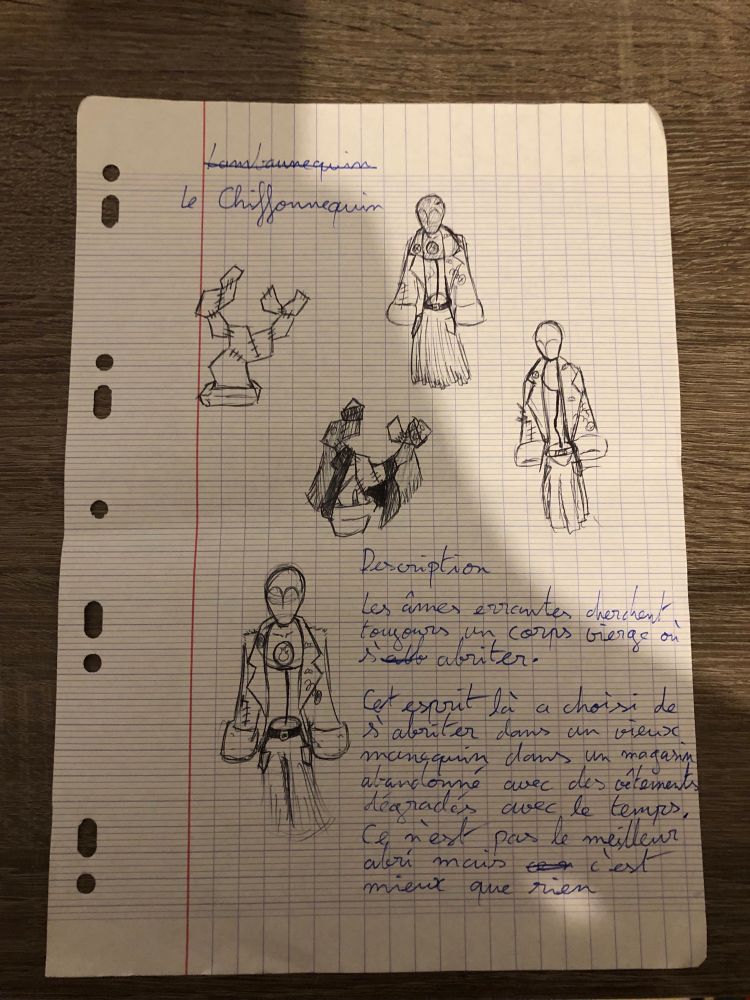 Lambannequin
Le Chiffonnequin
Description
Les âmes errantes cherchent
toujours un corps vierge où
s'abriter.
Cet esprit là a choisi de
s'abriter dans un vieux
manequin dans un magasin
abandonné avec des vêtements
dégradés avec le temps.
Ce n'est pas le meilleur
abri mais c'est
mieux que rien